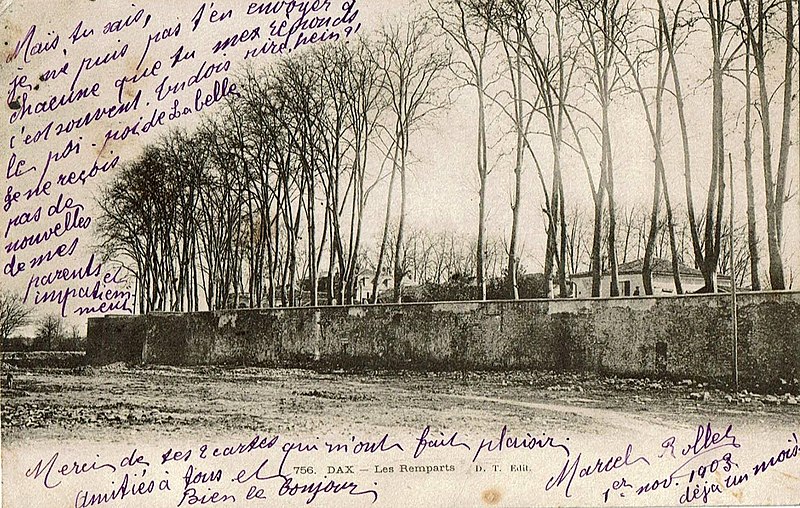 Mais, tu sais,
je ne puis pas t'en envoyer
chacune que tu me réponds
c'est souvent. Tu dois rire, hein!
le poi
de Labelle
Je ne reçois
pas de
nouvelles
de mes
parents et
impatiem
ment
Merci de tes 2 cartes qui m'ont fait plaisir
Amitiés à tous et
Bien le bonjour
756. DAX — Les Remparts D. T. Edit.
Marcel Rollet
1er nov. 1903
déjà un mois!